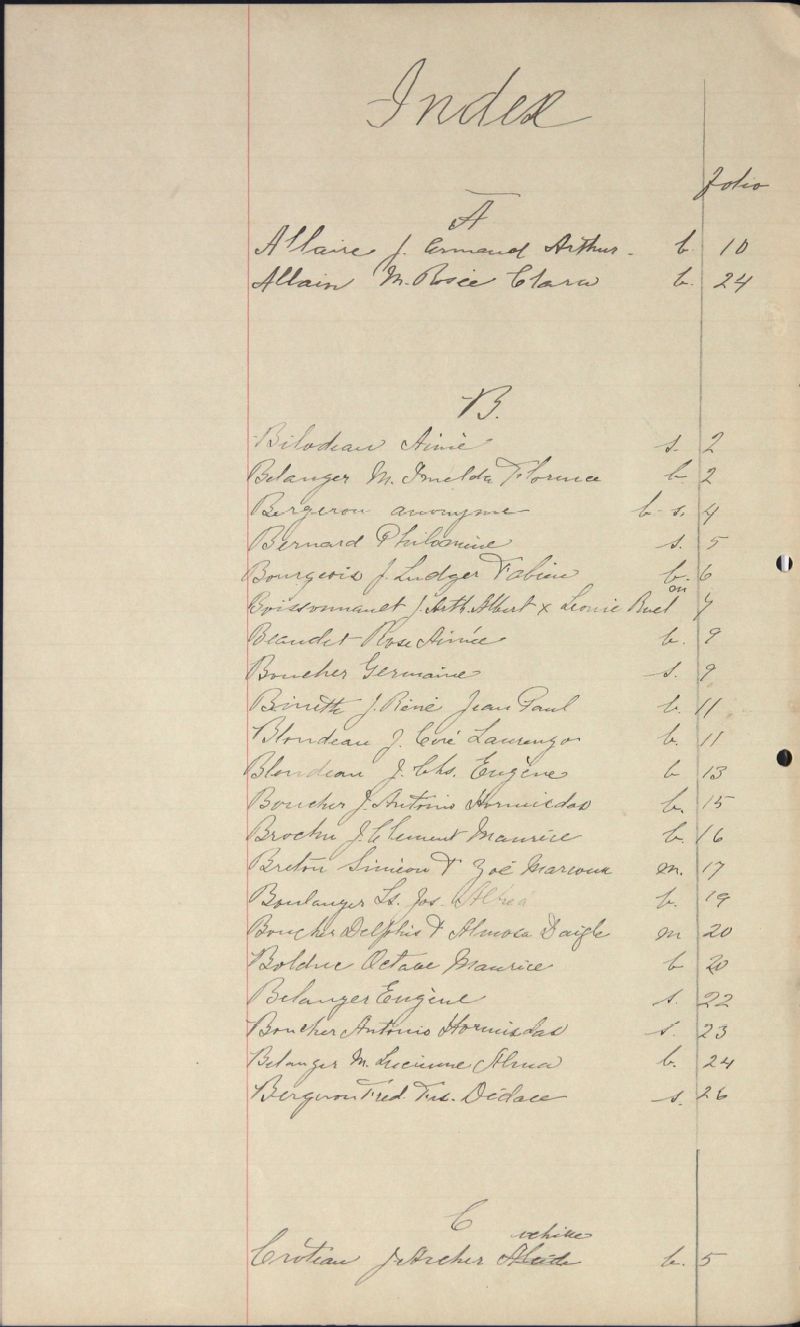 Index
folio
A
Allaire J. Armand Arthur. b. 10
Allain M. Rosée Clara b. 24
B.
Bilodeau Aimé s. 2
Belanger M. Imelda Florence b 2
Bergeron anonyme b s. 4
Bernard Philomène s. 5
Bourgeois J. Ludger Fabien b. 6
Boissonnault J. Arth. Albert x Leonie Ruel m 7
Beaudet Rose Aimée b. 9
Boucher Germaine s. 9
Binette J. Réné Jean Paul b. 11
Blondeau J. Laurenzo b. 11
Blondeau J. Chs. Eugène b 13
Boucher J. Antonio Hormisdas b. 15
Brochu J. Clement Maurice b. 16
Breton Siméon & Zoé Marcoux m. 17
Boulanger Ls. Jos. b. 19
Boucher Delphis & Almosa Daigle m 20
Bolduc Octave Maurice b 20
Belanger Eugène s. 22
Boucher Antonio Hormisdas s. 23
Belanger M. Lucienne Alma b. 24
Bergeron Fred. Frs. Didace s. 26
C
Crôteau J. Archer b. 5